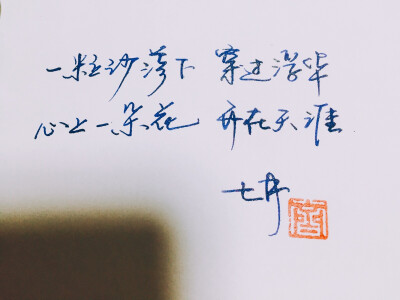 一粒沙落下 穿过浮华
心上一朵花 开在天涯
七